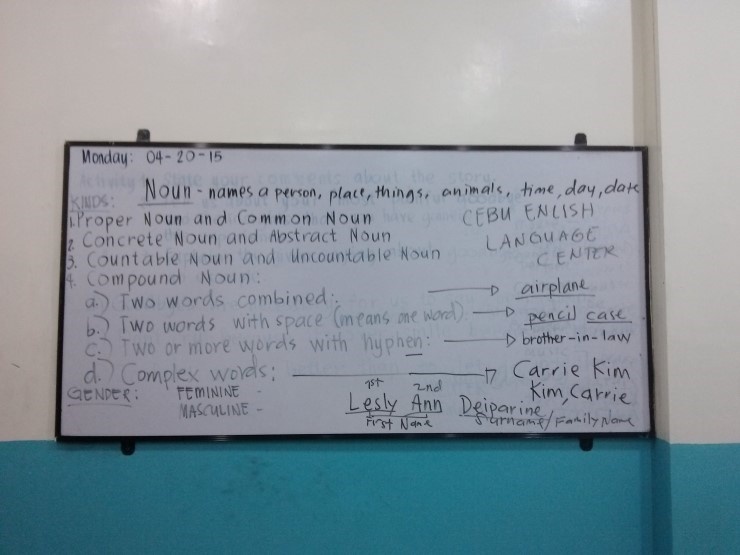 Monday: 04-20-15
Noun - names a person, place, things, animals, time, day, date
KINDS:
1. Proper Noun and Common Noun
CEBU ENLISH
2. Concrete Noun and Abstract Noun
LANGUAGE
3. Countable Noun and Uncountable Noun
CENTER
4. Compound Noun:
a.) Two words combined: airplane
b.) Two words with space (means one word) pencil case
c.) Two or more words with hyphen: brother-in-law
d.) Complex words: Carrie Kim
Kim, Carrie
GENDER: FEMININE -
MASCULINE -
1st 2nd
Lesly Ann Deiparine
First Name Surname/Family Name